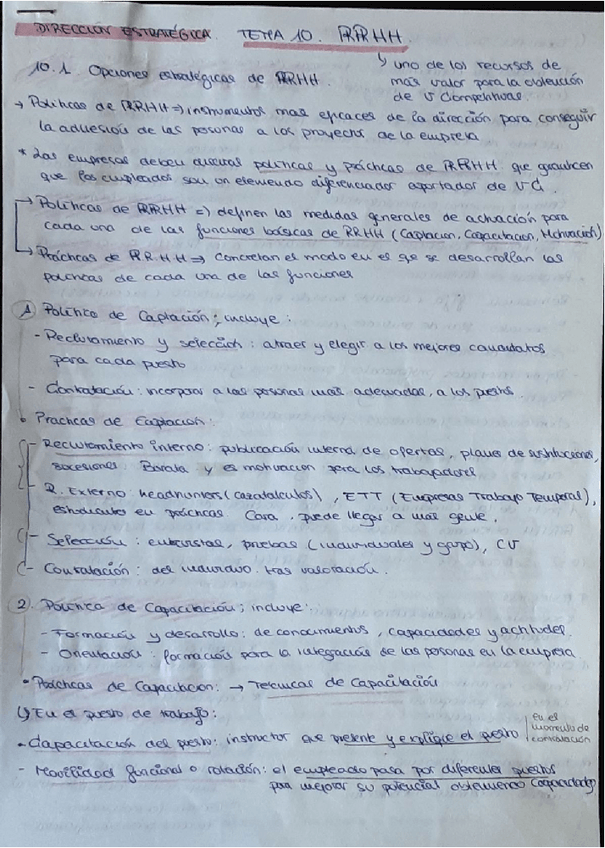 DIRECCIÓN ESTRATÉGICA. TEMA 10. RRHH.
↳ uno de los recursos de
más valor para la obtención
de V Competitivas.
10.1. Opciones estratégicas de RRHH.
→ Políticas de RRHH => instrumentos más eficaces de la dirección para conseguir
la adhesión de las personas a los proyectos de la empresa
* Las empresas deben políticas y prácticas de RRHH que garanticen
que los empleados son un elemento diferenciador aportador de VC.
→ Políticas de RRHH => definen las medidas generales de actuación para
cada una de las funciones básicas de RRHH (Captación, Capacitación, Motivación)
→ Prácticas de RRHH => Concretan el modo en el que se desarrollan las
políticas de cada una de las funciones
1 Política de Captación; incluye:
- Reclutamiento y selección: atraer y elegir a los mejores candidatos
para cada puesto
- Contratación: incorporar a las personas más adecuadas, a los puestos.
• Prácticas de Captación:
- Reclutamiento interno: publicación interna de ofertas, planes de sustituciones,
sucesiones. Barata y es motivación para los trabajadores
- R. Externo: headhunters (cazatalentos), ETT (Empresas Trabajo Temporal),
estudiantes en prácticas. Cara, puede llegar a más gente.
- Selección: entrevistas, pruebas (individuales y grupo), CV
- Contratación: del individuo, tras valoración.
2. Política de Capacitación; incluye:
- Formación y desarrollo: de conocimientos, capacidades y actitudes.
- Orientación: formación para la integración de las personas en la empresa
• Prácticas de Capacitación: → Técnicas de Capacitación
↳ En el puesto de trabajo:
• Capacitación del puesto: instructor que presente y explique el puesto | en el
momento de
contratación
- Movilidad funcional o rotación: el empleado pasa por diferentes puestos
para mejorar su potencial obteniendo capacidades